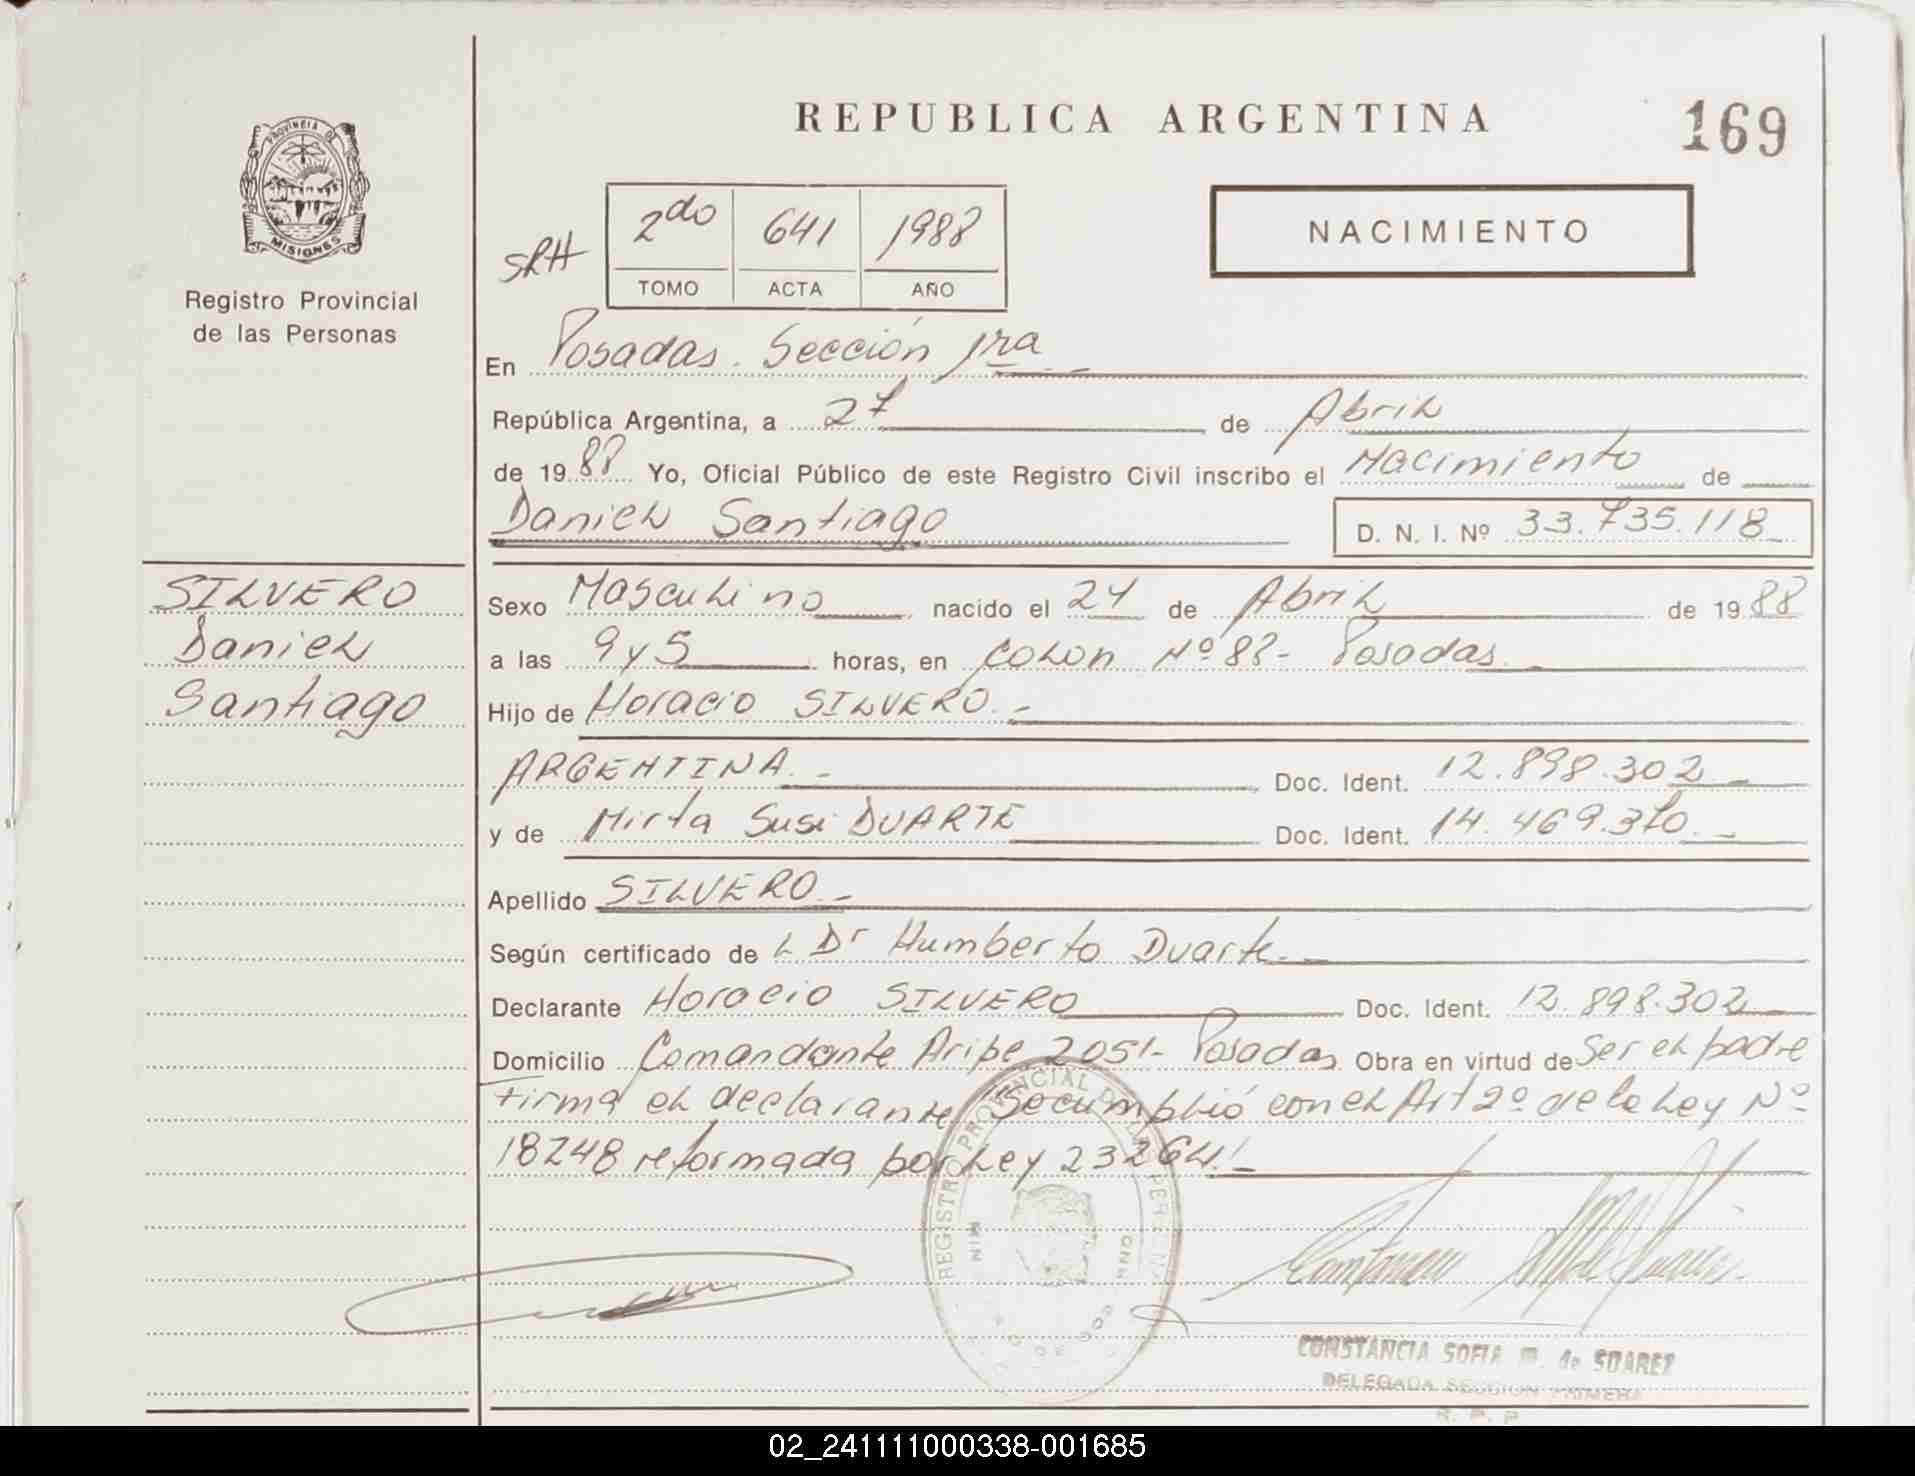 REPUBLICA ARGENTINA
169
PROVINCIA DE
MISIONES
Registro Provincial
de las Personas
SRH
2do 641 1988
TOMO ACTA AÑO
NACIMIENTO
En Posadas. Sección 1ra
República Argentina, a 27 de Abril
de 1988 Yo, Oficial Público de este Registro Civil inscribo el Nacimiento de
Daniel Santiago
D. N. I. Nº 33.735.118
SILVERO
Daniel
Santiago
Sexo Masculino nacido el 24 de Abril de 1988
a las 9 y 5 horas, en Colon Nº 83- Posadas.
Hijo de Horacio SILVERO.-
ARGENTINA.- Doc. Ident. 12.898.302
y de Mirta Susi DUARTE Doc. Ident. 14.469.370.-
Apellido SILVERO.-
Según certificado de L Dr Humberto Duarte.-
Declarante Horacio SILVERO Doc. Ident. 12.898.302
Domicilio Comandante Aripe 2051- Posadas Obra en virtud de Ser el padre
Firma el declarante Se cumplió con el Art 2º de la Ley Nº
18248 reformada por Ley 23264.-
REGISTRO PROVINCIAL DE LAS PERSONAS
CONSTANCIA SOFIA M. de SUAREZ
DELEGADA SECCION PRIMERA
R. P. P
02_241111000338-001685